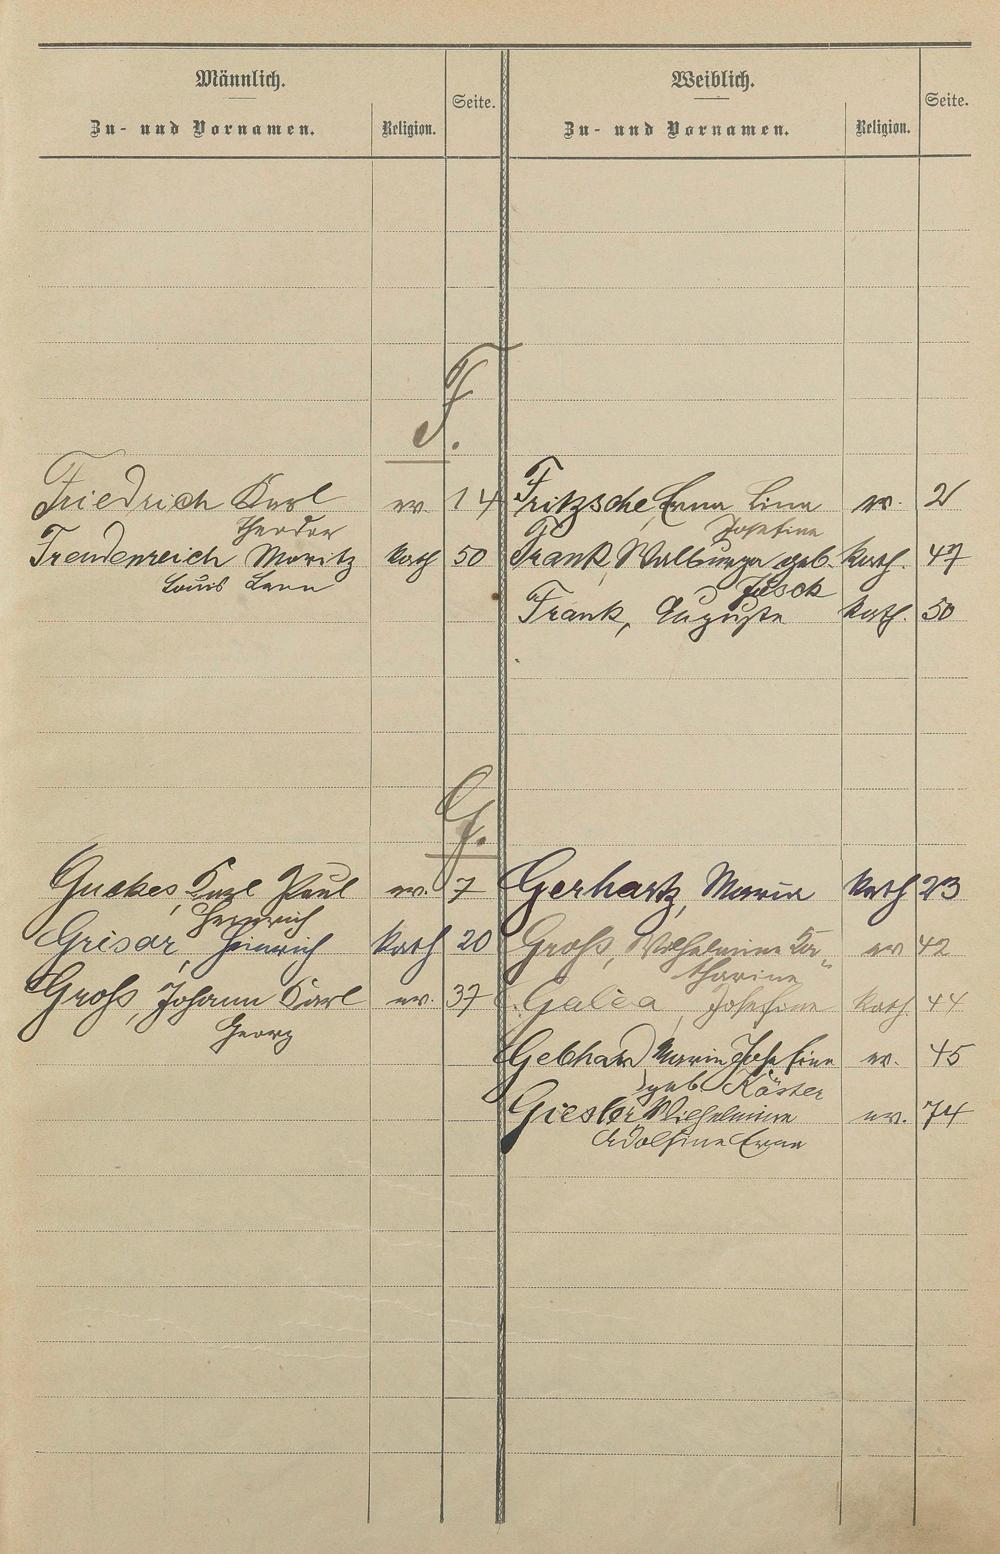 Männlich.
Zu- und Vornamen.
Religion.
Seite.
Weiblich.
Zu- und Vornamen.
Religion.
Seite.
F.
Friedrich Karl ev. 14
Theodor
Freudenreich Moritz kath 50
Louis
Fritzsche, Erna Lina ev. 2
Josefine
Frank, Walburga geb. kath. 47
Frank, Auguste kath. 50
G.
Guckes, Karl Paul ev. 7
Heinrich
Grisar, Heinrich kath 20
Groß, Johann Karl ev. 37
Georg
Gerhartz, Maria kath 23
Groß, Wilhelmine Ka- ev 42
tharine
Galica, Josefine kath. 44
Gebhard Maria Josefine ev. 45
geb. Köster
Giesler Wilhelmine ev. 74
Adolfine Erna